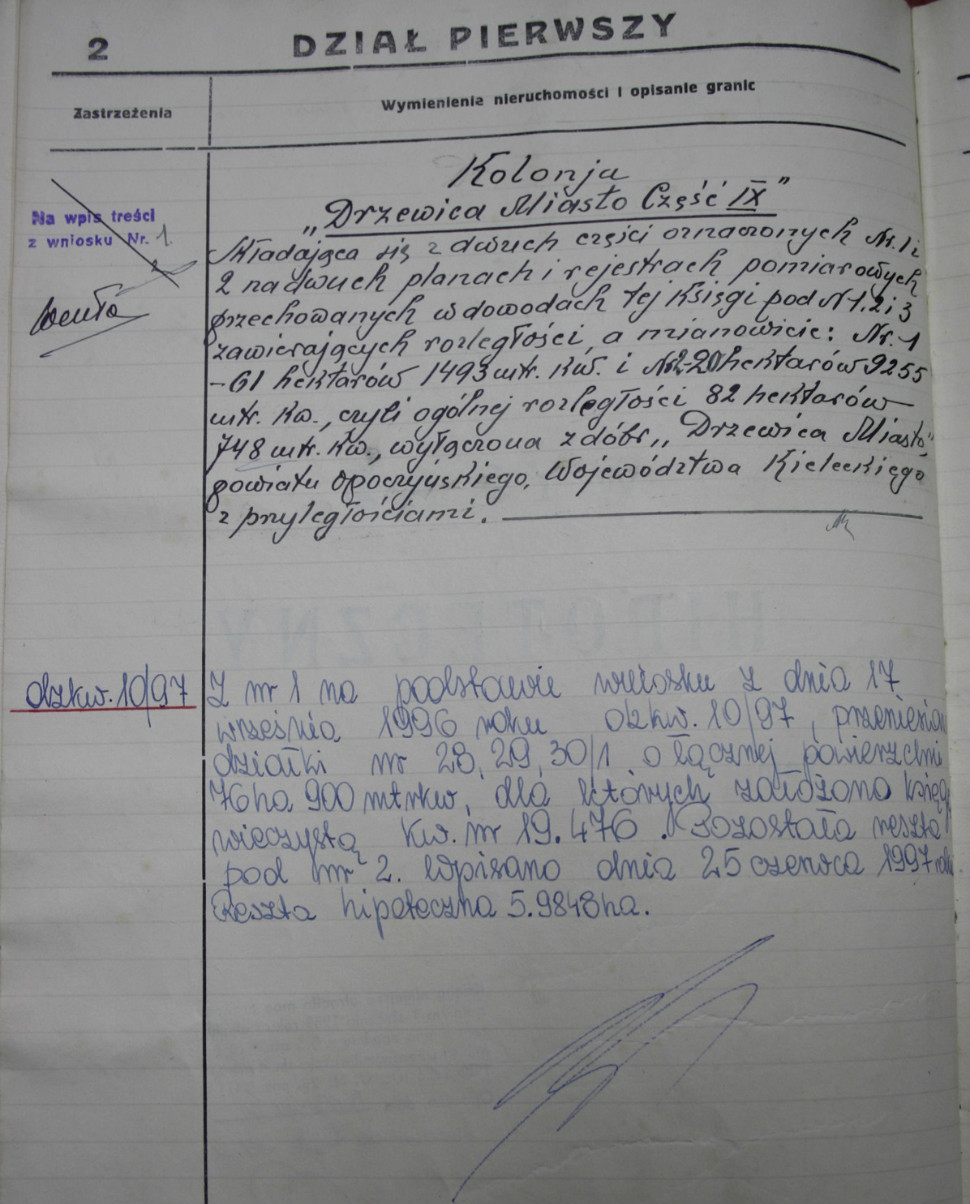 2
DZIAŁ PIERWSZY
Zastrzeżenia
Wymienienie nieruchomości i opisanie granic
Kolonja
„Drzewica Miasto Część IX”
Na wpis treści
z wniosku Nr. 1
składająca się z dwuch części oznaczonych Nr. 1 i
2 na dwuch planach i rejestrach pomiarowych
przechowanych w dowodach tej księgi pod N 1, 2 i 3
zawierających rozległości, a mianowicie: Nr. 1
- 61 hektarów 1493 mtr. kw. i Nr 2 - 20 hektarów 9255
mtr. kw., czyli ogólnej rozległości 82 hektarów
748 mtr. kw., wyłączona z dóbr „Drzewica Miasto",
powiatu Opoczyńskiego, Województwa Kieleckiego
z przyległościami.
dzkw. 10/97
Z nr 1 na podstawie wniosku z dnia 17
września 1996 roku dzkw. 10/97, przeniesiono
działki nr 28, 29, 30/1 o łącznej powierzchni
76 ha 900 mtrkw, dla których założono księgę
wieczystą kw. nr 19.476. Pozostała reszta
pod nr 2. Wpisano dnia 25 czerwca 1997 roku
Reszta hipoteczna 5.9848 ha.